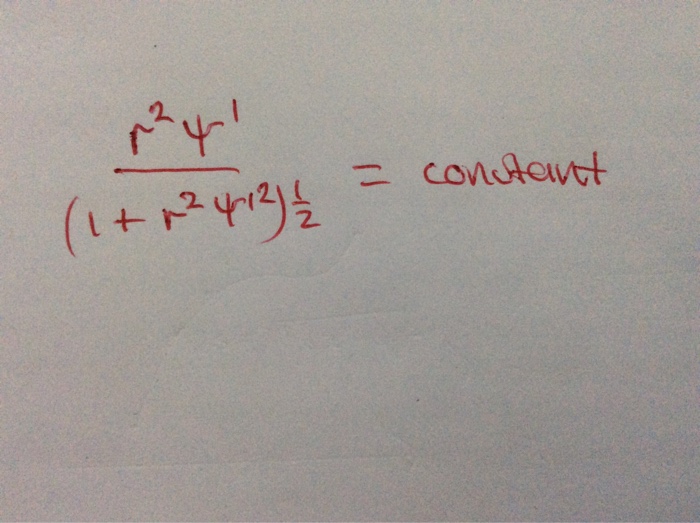 r²ψ'
(1 + r²ψ'²)½ = constant